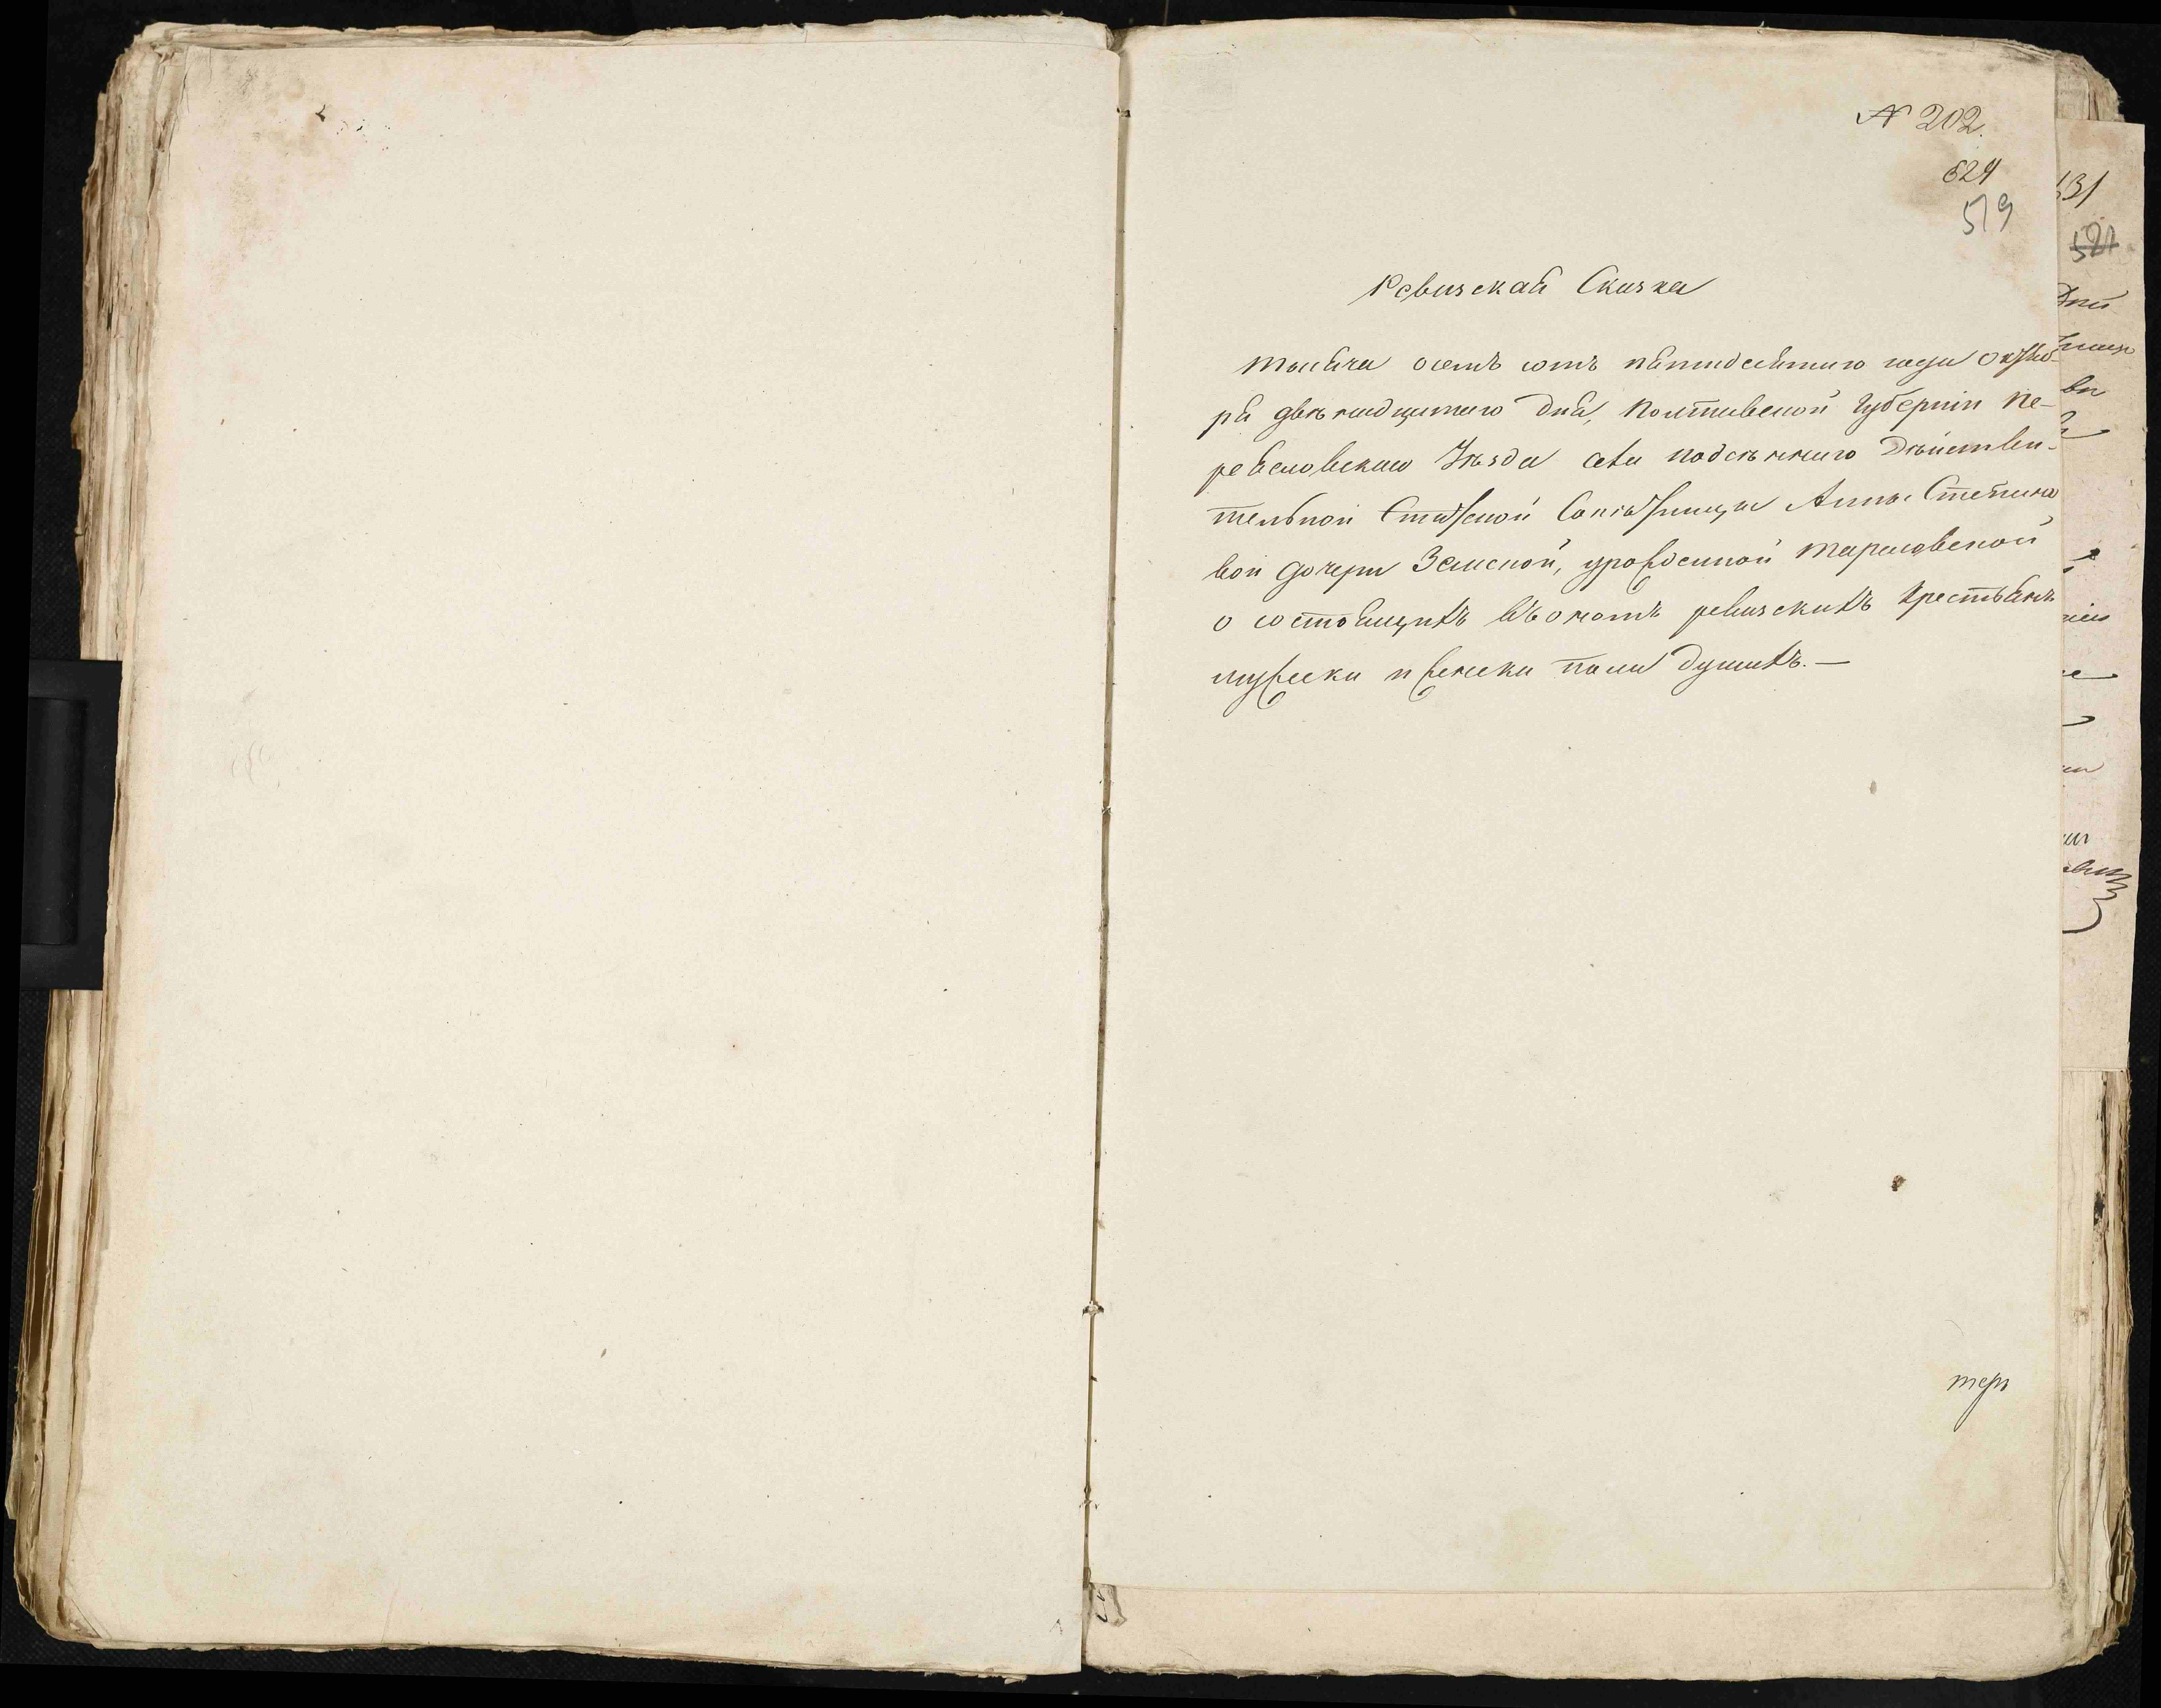 № 202.
624
519
Ревизская Сказка
тысяча осемъ сотъ пятидесятаго года Октяб-
ря двенадцатаго дня, Полтавской Губерніи Пе-
реяславскаго Уѣзда села Подсѣннаго Дѣйстви-
тельной Статской Совѣтницы Анны Степано
вой дочери Земской, урожденной Тарновской
о состоящихъ въ ономъ ревизскихъ крестьянъ
мужеска и женска пола душахъ.—
тери
531
521